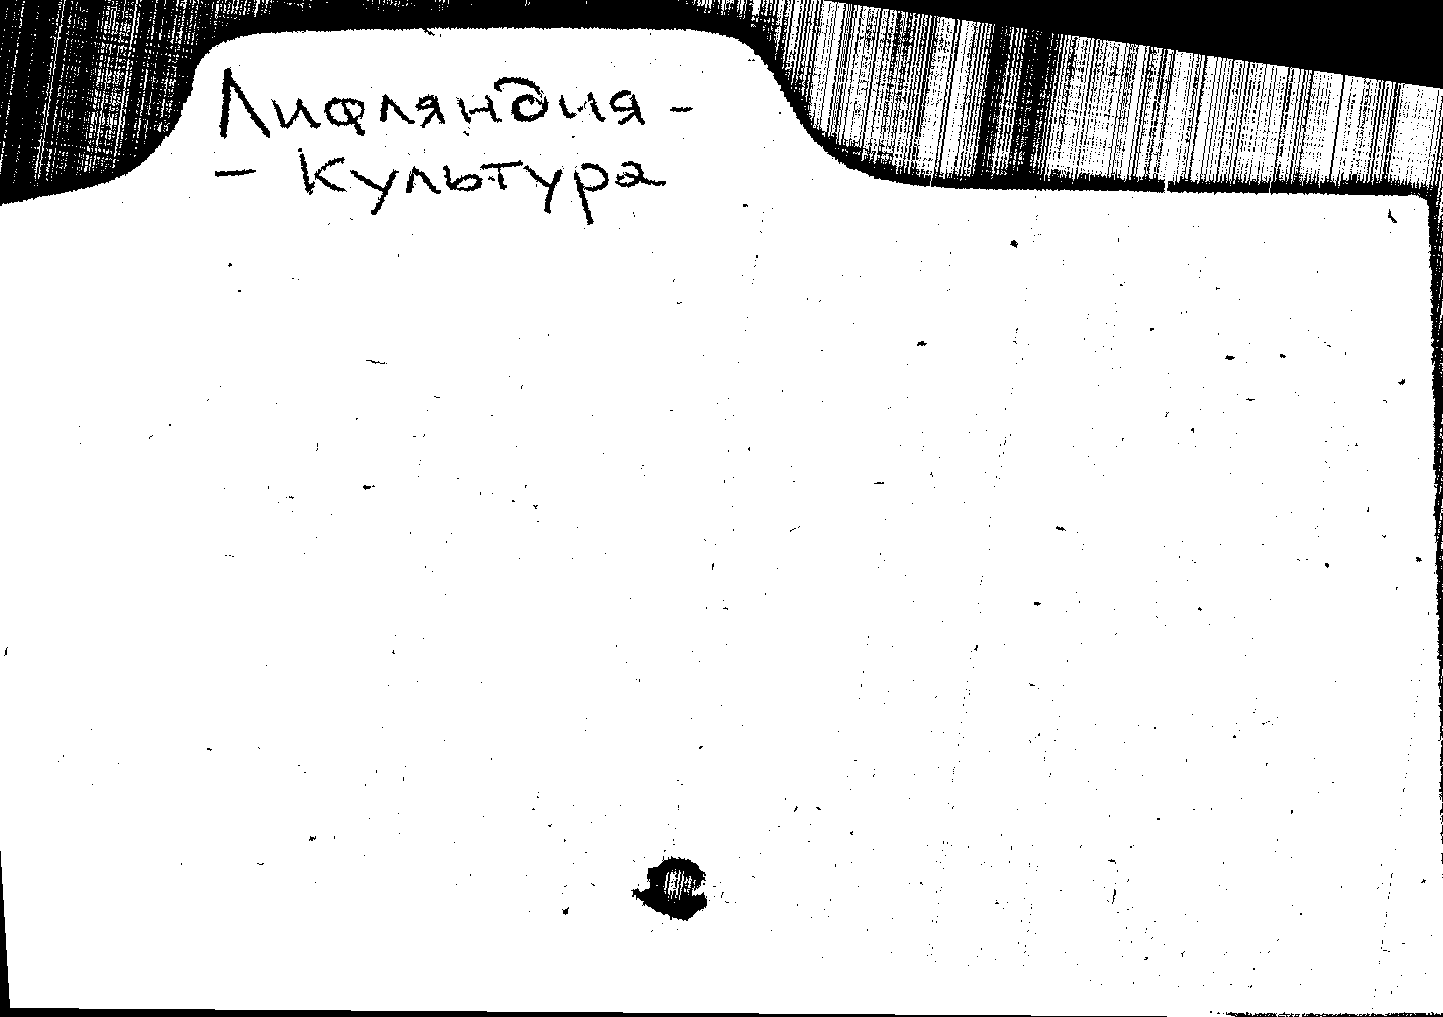 Лифляндия -
- Культура